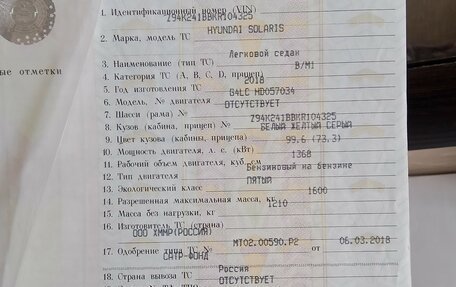 ые отметки
1. Идентификационный номер (VIN)
Z94K241BBKR104325
2. Марка, модель ТС HYUNDAI SOLARIS
3. Наименование (тип ТС) Легковой седан
4. Категория ТС (A, B, C, D, прицеп) B/M1
5. Год изготовления ТС 2018
6. Модель, № двигателя G4LC HD057034
7. Шасси (рама) № ОТСУТСТВУЕТ
8. Кузов (кабина, прицеп) № Z94K241BBKR104325
9. Цвет кузова (кабины, прицепа) БЕЛЫЙ ЖЕЛТЫЙ СЕРЫЙ
10. Мощность двигателя, л. с. (кВт) 99.6 (73.3)
11. Рабочий объем двигателя, куб. см 1368
12. Тип двигателя Бензиновый на бензине
13. Экологический класс ПЯТЫЙ
14. Разрешенная максимальная масса, кг 1600
15. Масса без нагрузки, кг 1210
16. Изготовитель ТС (страна)
ООО ХММР(РОССИЯ)
17. Одобрение типа ТС № МТ02.00590.Р2 от 06.03.2018
САТР-ФОНД
18. Страна вывоза ТС Россия
ОТСУТСТВУЕТ